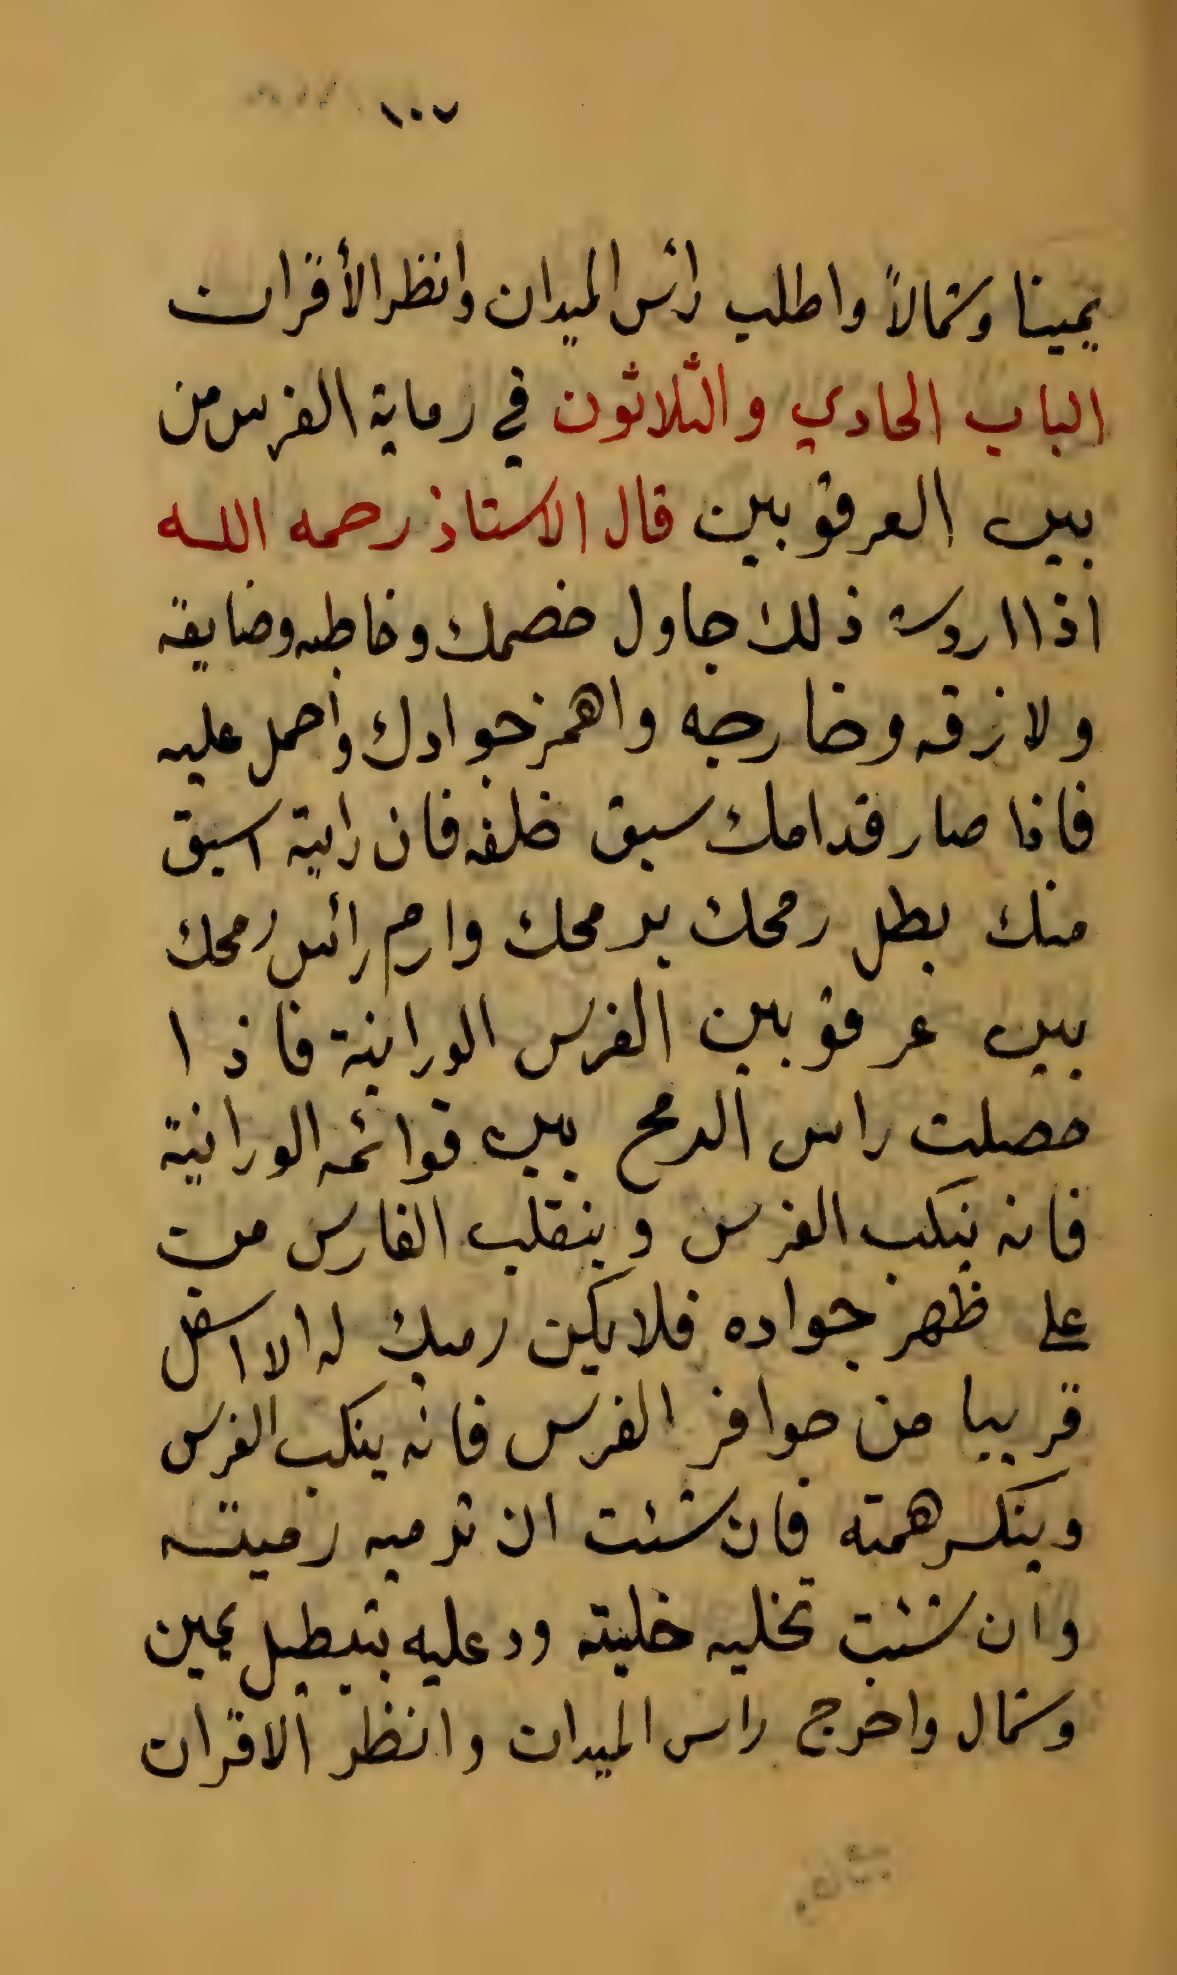 ١٠٧
يمينا وشمالاً واطلب رأس الميدان وانظر الأقران
الباب الحادي والثلاثون في رماية الفرس من
بين العرقوبين قال الاستاذ رحمه الله
اذا اردت ذلك جاول خصمك وخاطبه وضايقه
ولازقه وخارجه واهمز جوادك وأحمل عليه
فاذا صار قدامك سيق خلفه فان رايته اسبق
منك بطل رمحك برمحك وارم رأس رمحك
بين عرقوبين الفرس الورانية فاذا
حصلت راس الرمح بين قوائمه الورانية
فانه ينكب الفرس وينقلب الفارس من
على ظهر جواده فلا يكن رميك له الا اسفل
قريبا من حوافر الفرس فانه ينكب الفرس
وينكسر همته فان شئت ان ترميه رميته
وان شئت تخليه خليته ورد عليه بتبطيل يمين
وشمال واخرج راس الميدان وانظر الاقران